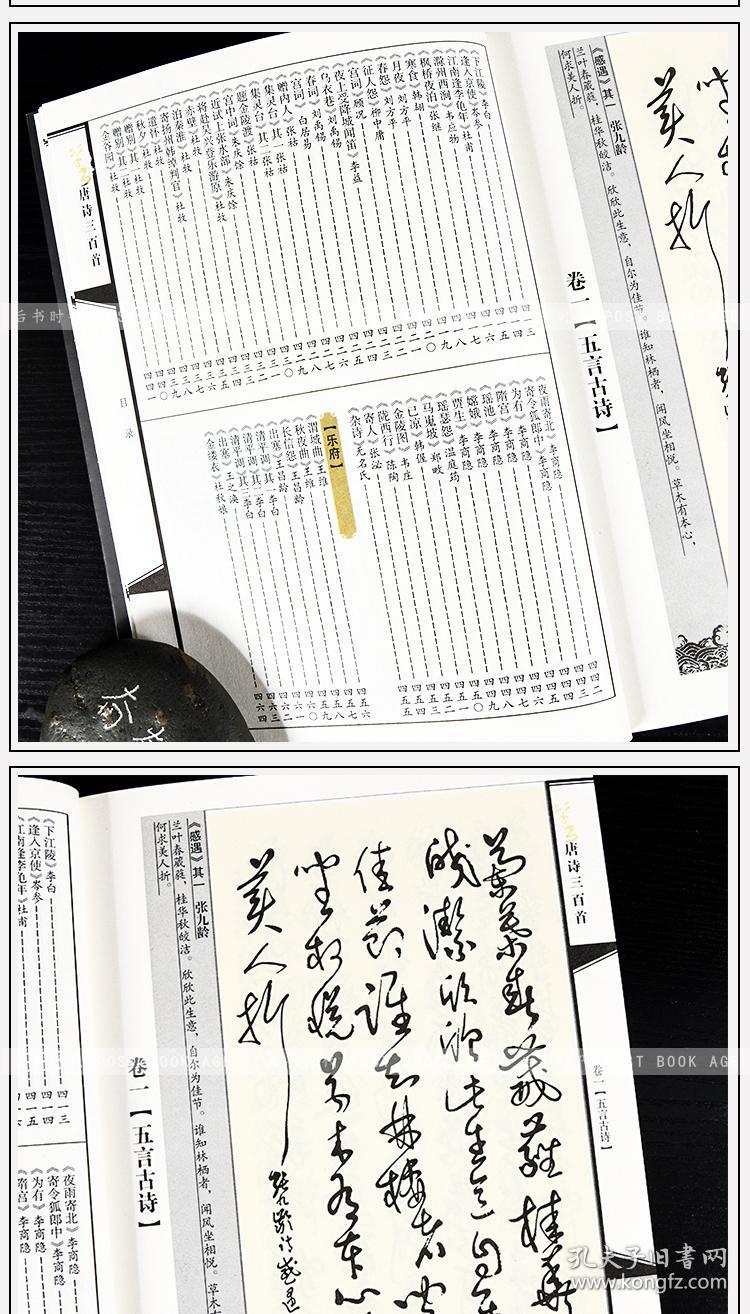 《感遇》其一 张九龄
兰叶春葳蕤，桂华秋皎洁。欣欣此生意，自尔为佳节。谁知林栖者，闻风坐相悦。草木有本心，
何求美人折。
美人折
卷一【五言古诗】
《下江陵》李白
《逢入京使》岑参
《江南逢李龟年》杜甫
《滁州西涧》韦应物
《枫桥夜泊》张继
《寒食》韩翃
《月夜》刘方平
《春怨》刘方平
《征人怨》柳中庸
《宫词》顾况
《夜上受降城闻笛》李益
《乌衣巷》刘禹锡
《春词》刘禹锡
《宫词》白居易
《赠内人》张祜
《集灵台》其一 张祜
《集灵台》其二 张祜
《题金陵渡》张祜
《宫中词》朱庆馀
《近试上张水部》朱庆馀
《将赴吴兴登乐游原》杜牧
《赤壁》杜牧
《泊秦淮》杜牧
《寄扬州韩绰判官》杜牧
《遣怀》杜牧
《秋夕》杜牧
《赠别》其一 杜牧
《赠别》其二 杜牧
《金谷园》杜牧
《夜雨寄北》李商隐
《寄令狐郎中》李商隐
《为有》李商隐
《隋宫》李商隐
《瑶池》李商隐
《嫦娥》李商隐
《贾生》李商隐
《瑶瑟怨》温庭筠
《马嵬坡》郑畋
《已凉》韩偓
《金陵图》韦庄
《陇西行》陈陶
《寄人》张泌
《杂诗》无名氏
【乐府】
《渭城曲》王维
《秋夜曲》王维
《长信怨》王昌龄
《出塞》王昌龄
《清平调》其一 李白
《清平调》其二 李白
《清平调》其三 李白
《出塞》王之涣
《金缕衣》杜秋娘
唐诗三百首
目录
后书时
POST BOOK AGE
唐诗三百首
卷一【五言古诗】
兰叶春葳蕤桂华
皎洁欣欣此生意自
佳节谁知林栖者
坐相悦草木有本心
美人折
《感遇》其一 张九龄
兰叶春葳蕤，桂华秋皎洁。欣欣此生意，自尔为佳节。谁知林栖者，闻风坐相悦。
何求美人折。
卷一【五言古诗】
《下江陵》李白 四一三
《逢入京使》岑参 四一四
《江南逢李龟年》杜甫 四一五
《夜雨寄北》李商隐
《寄令狐郎中》李商隐
《为有》李商隐
《隋宫》李商隐
POST BOOK AGE
孔夫子旧书网
www.kongfz.com